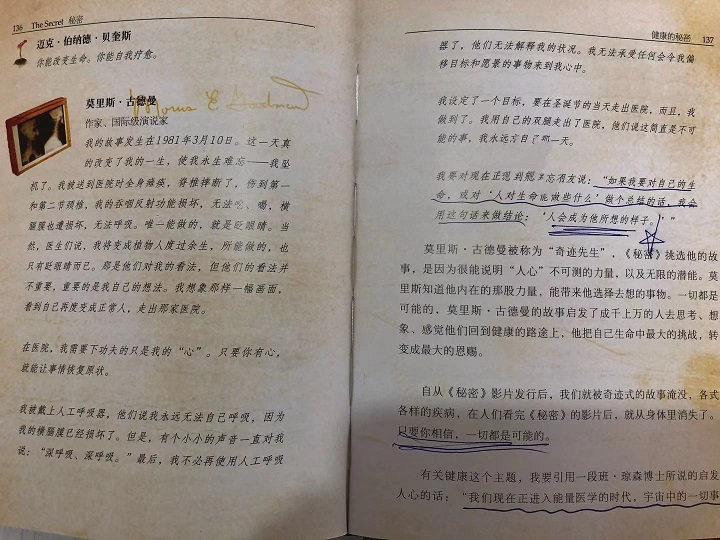 136 The Secret 秘密
迈克·伯纳德·贝奎斯
你能改变生命。你能自我疗愈。
莫里斯·古德曼
Morris E Goodman
作家、国际级演说家
我的故事发生在1981年3月10日。这一天真
的改变了我的一生,使我永生难忘——我坠
机了。我被送到医院时全身瘫痪,脊椎摔断了,伤到第一
和第二节颈椎,我的吞咽反射功能损坏,无法吃、喝,横
膈膜也遭损坏,无法呼吸。唯一能做的,就是眨眼睛。当
然,医生们说,我将变成植物人度过余生,所能做的,也
只有眨眼睛而已。那是他们对我的看法,但他们的看法并
不重要,重要的是我自己的想法。我想象那样一幅画面,
看到自己再度变成正常人,走出那家医院。
在医院,我需要下功夫的只是我的“心”。只要你有心,
就能让事情恢复原状。
我被戴上人工呼吸器,他们说我永远无法自己呼吸,因为
我的横膈膜已经损坏了。但是,有个小小的声音一直对我
说:“深呼吸、深呼吸。”最后,我不必再使用人工呼吸
健康的秘密 137
器了,他们无法解释我的状况。我无法承受任何会令我偏
移目标和愿景的事物来到我心中。
我设定了一个目标,要在圣诞节的当天走出医院,而且,我
做到了。我用自己的双腿走出了医院,他们说这简直是不可
能的事,我永远忘 那一天。
我要对现在正感到 友说:“如果我要对自己的生
命,或对‘人对生命能做些什么’做个总结的话,我会
用这句话来做结论:‘人会成为他所想的样子。’”
莫里斯·古德曼被称为“奇迹先生”,《秘密》挑选他的故
事,是因为很能说明“人心”不可测的力量,以及无限的潜能。莫
里斯知道他内在的那股力量,能带来他选择去想的事物。一切都是
可能的,莫里斯·古德曼的故事启发了成千上万的人去思考、想
象、感觉他们回到健康的路途上,他把自己生命中最大的挑战,转
变成最大的恩赐。
自从《秘密》影片发行后,我们就被奇迹式的故事淹没,各式
各样的疾病,在人们看完《秘密》的影片后,就从身体里消失了。
只要你相信,一切都是可能的。
有关健康这个主题,我要引用一段班·琼森博士所说的启发
人心的话:“我们现在正进入能量医学的时代,宇宙中的一切事